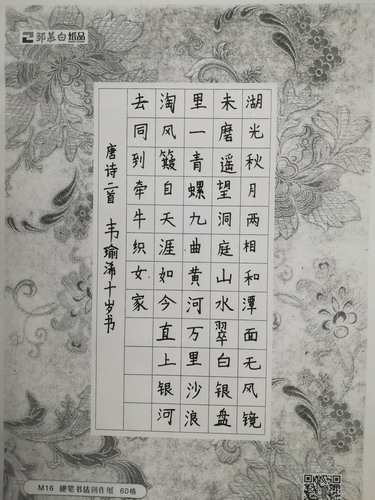 邹慕白纸品
湖光秋月两相和潭面无风镜
未磨遥望洞庭山水翠白银盘
里一青螺九曲黄河万里沙浪
淘风簸自天涯如今直上银河
去同到牵牛织女家
唐诗二首 韦瑜浠十岁书
M16 硬笔书法创作纸 60格